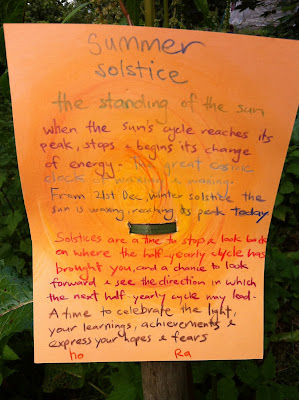 Summer
solstice
the standing of the sun
when the sun's cycle reaches its
peak, stops & begins its change
of energy. The great cosmic
clock of waxing & waning.
From 21st Dec, winter solstice the
sun is waxing, reaching its peak today
Solstices are a time to stop & look back
on where the half-yearly cycle has
brought you, and a chance to look
forward & see the direction in which
the next half-yearly cycle may lead.
A time to celebrate the light,
your learnings, achievements &
express your hopes & fears
ho Ra